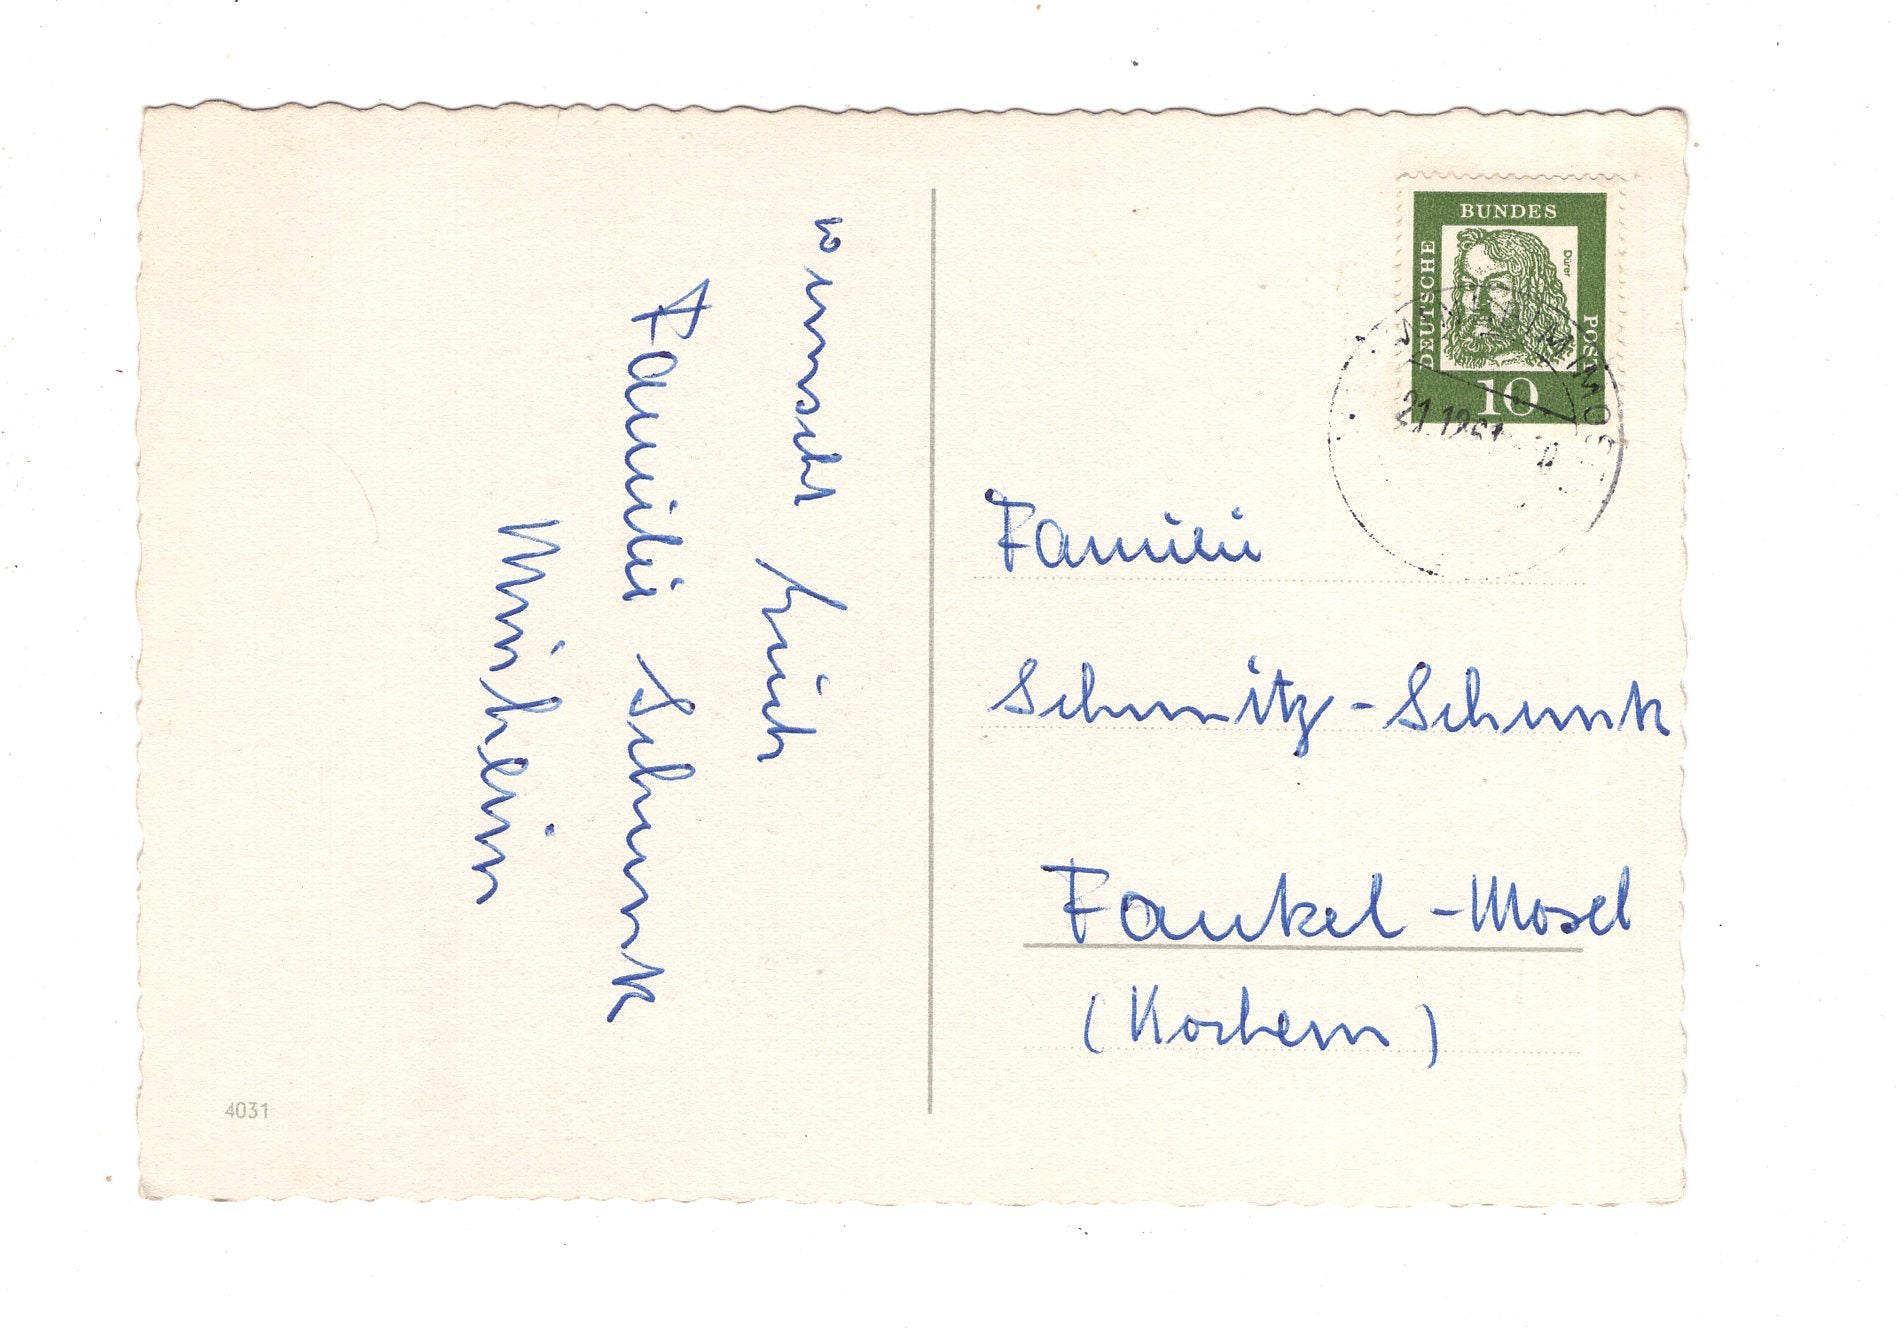 wünscht Euch
Familie Schunk
Minheim
4031
DEUTSCHE
BUNDES
POST
Dürer
10
21.12.61
Familie
Schmitz-Schunk
Fankel-Mosel
(Kochem)